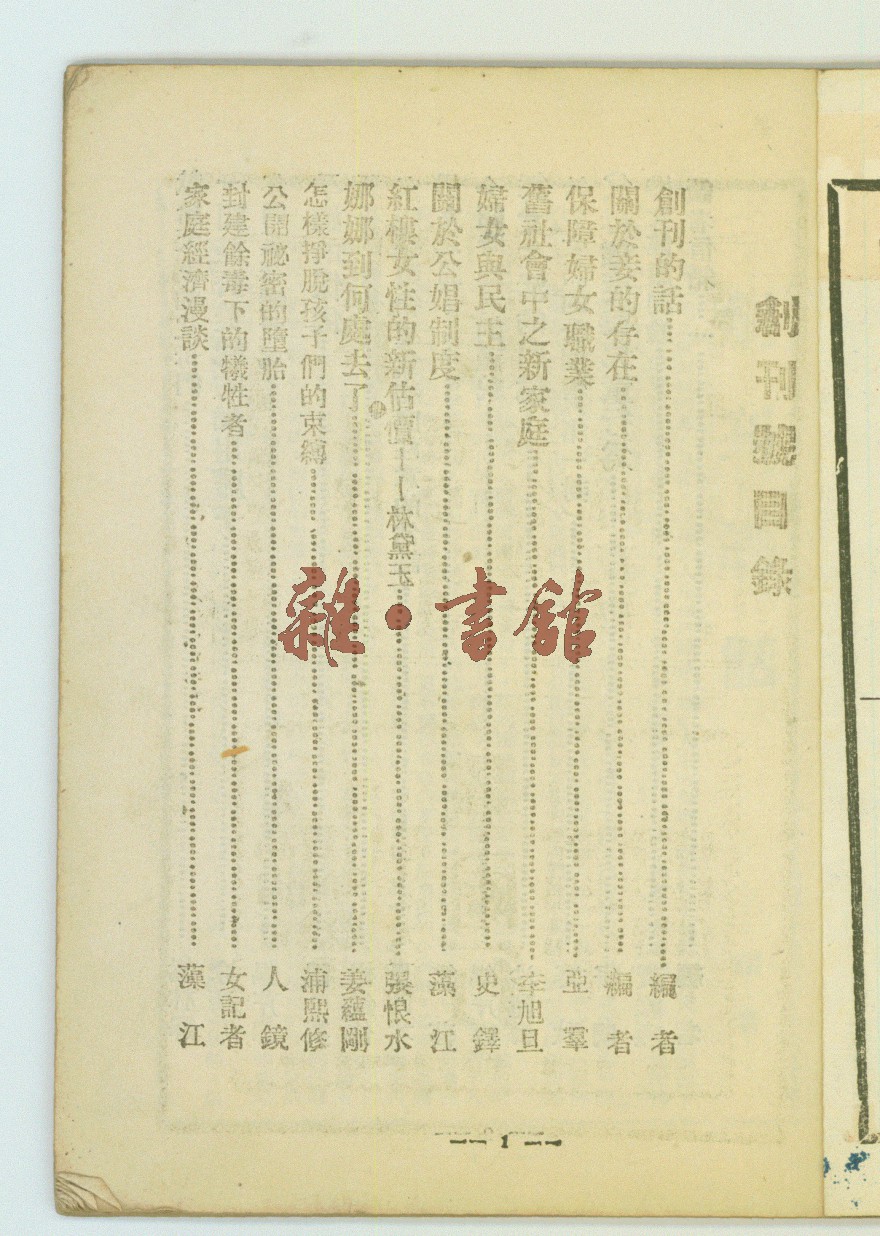 創刊號目錄
創刊的話 編者
關於妾的存在 編者
保障婦女職業 亞羣
舊社會中之新家庭 李旭旦
婦女與民主 史鐸
關於公娼制度 藻江
紅樓女性的新估價——林黛玉 張恨水
娜娜到何處去了 姜蘊剛
怎樣掙脫孩子們的束縛 浦熙修
公開祕密的墮胎 人鏡
封建餘毒下的犧牲者 女記者
家庭經濟漫談 藻江
雜·書館
1